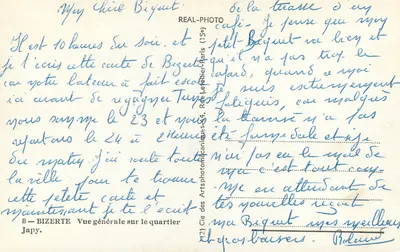 Mon chéri Biquet
Il est 10 heures du soir, et
je t'écris cette carte de Bizerte
car notre bateau à fait escale
ici avant de regagner Tunis
nous sommes le 23 et nous
repartons le 24 à 2 heures
du matin j'ai visité toute
la ville pour te trouver
cette petite carte et
maintenant je te l'écrit
8 — BIZERTE Vue générale sur le quartier
Japy.
REAL-PHOTO
(12) Cie des Arts photomécaniques, 44, Rue Letellier, Paris (15e)
de la terrasse d'un
café. Je pense que mon
petit Biquet va bien et
qu'il n'a pas trop le
cafard, quand à moi
je suis extrêmement
fatigués, car malgrès
la traversé n'a pas
été formidable et j'ai
n'ai pas eu le mal de
mer c'est tout comme
en attendant de
tes nouvelles reçoit
ma Biquet mes meilleurs
et gros baisers.